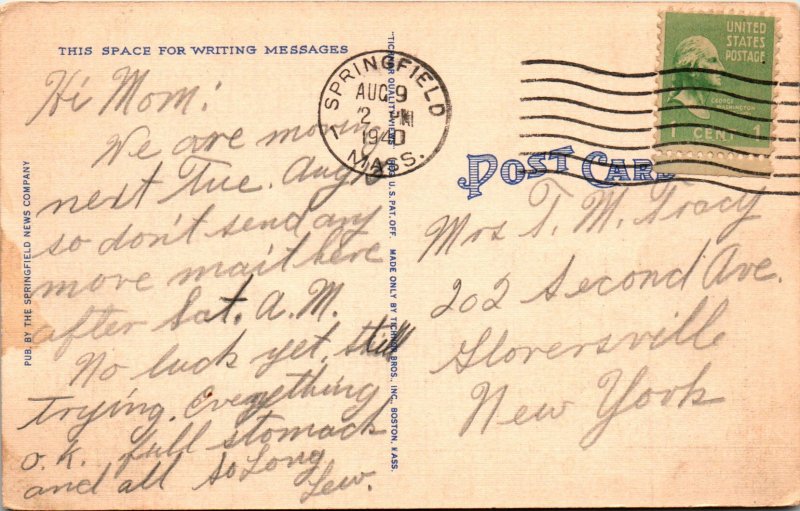 THIS SPACE FOR WRITING MESSAGES
Hi Mom:
We are moving
next Tue. Aug 13
so don't send any
more mail here
after Sat. A.M.
No luck yet, still
trying. Everything
o.k. full stomach
and all So Long
Lew.
PUB. BY THE SPRINGFIELD NEWS COMPANY
"TICHNOR QUALITY VIEWS," REG. U. S. PAT. OFF. MADE ONLY BY TICHNOR BROS., INC., BOSTON, MASS.
SPRINGFIELD
AUG 9
2 PM
1940
MASS.
UNITED
STATES
POSTAGE
GEORGE
WASHINGTON
1 CENT 1
POST CARD
Mrs T. M. Tracy
202 Second Ave.
Gloversville
New York